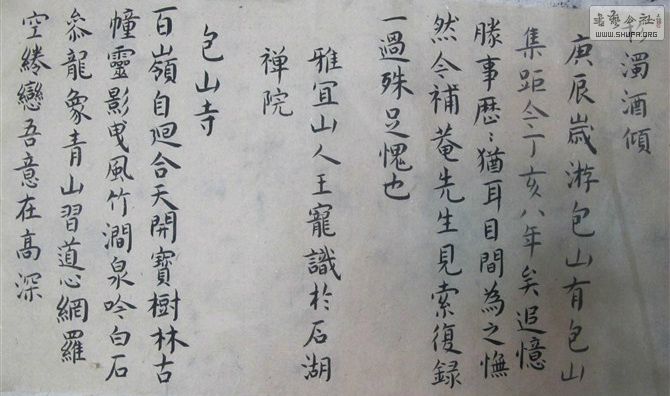 濁酒傾
庚辰歲游包山有包山
集距今丁亥八年矣追憶
勝事歷〻猶耳目間為之憮
然令補菴先生見索復録
一過殊足愧也
雅宜山人王寵識於石湖
禅院
包山寺
百嶺自迴合天開寶樹林古
幢靈影曳風竹澗泉吟白石
叅龍象青山習道心網羅
空綣戀吾意在高深
書藝公社
WWW.SHUFA.ORG